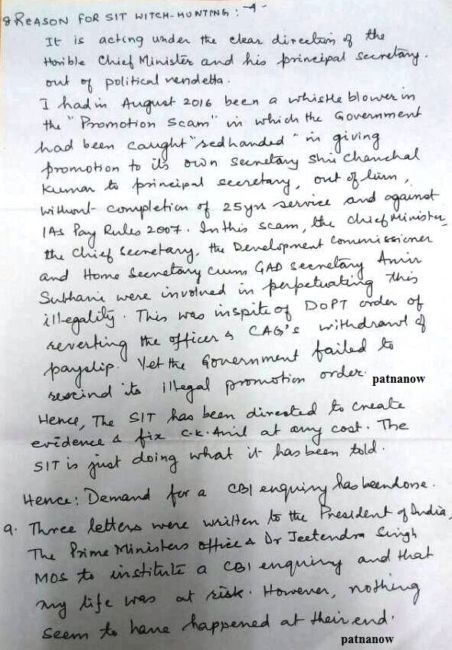 8 REASON FOR SIT WITCH-HUNTING: -4-
It is acting under the clear direction of the
Hon'ble Chief Minister and his principal secretary.
out of political vendetta.
I had in August 2016 been a whistle blower in
the "Promotion Scam" in which the Government
had been caught "red handed" in giving
promotion to its own secretary Shri Chanchal
Kumar to principal secretary, out of turn,
without completion of 25 yrs service and against
IAS Pay Rules 2007. In this scam, the Chief Minister,
the Chief Secretary, the Development Commissioner
and Home Secretary cum GAD secretary Amir
Subhani were involved in perpetuating this
illegality. This was inspite of DOPT order of
reverting the officer & CAG's withdrawl of
payslip. Yet the Government failed to
rescind its illegal promotion order.
patnanow
Hence, The SIT has been directed to create
evidence & fix C.K. Anil at any cost. The
SIT is just doing what it has been told.
Hence: Demand for a CBI enquiry has been done.
9. Three letters were written to the President of India,
The Prime Ministers office & Dr Jeetendra Singh
MOS to institute a CBI enquiry and that
my life was at risk. However, nothing
seem to have happened at their end.
patnanow